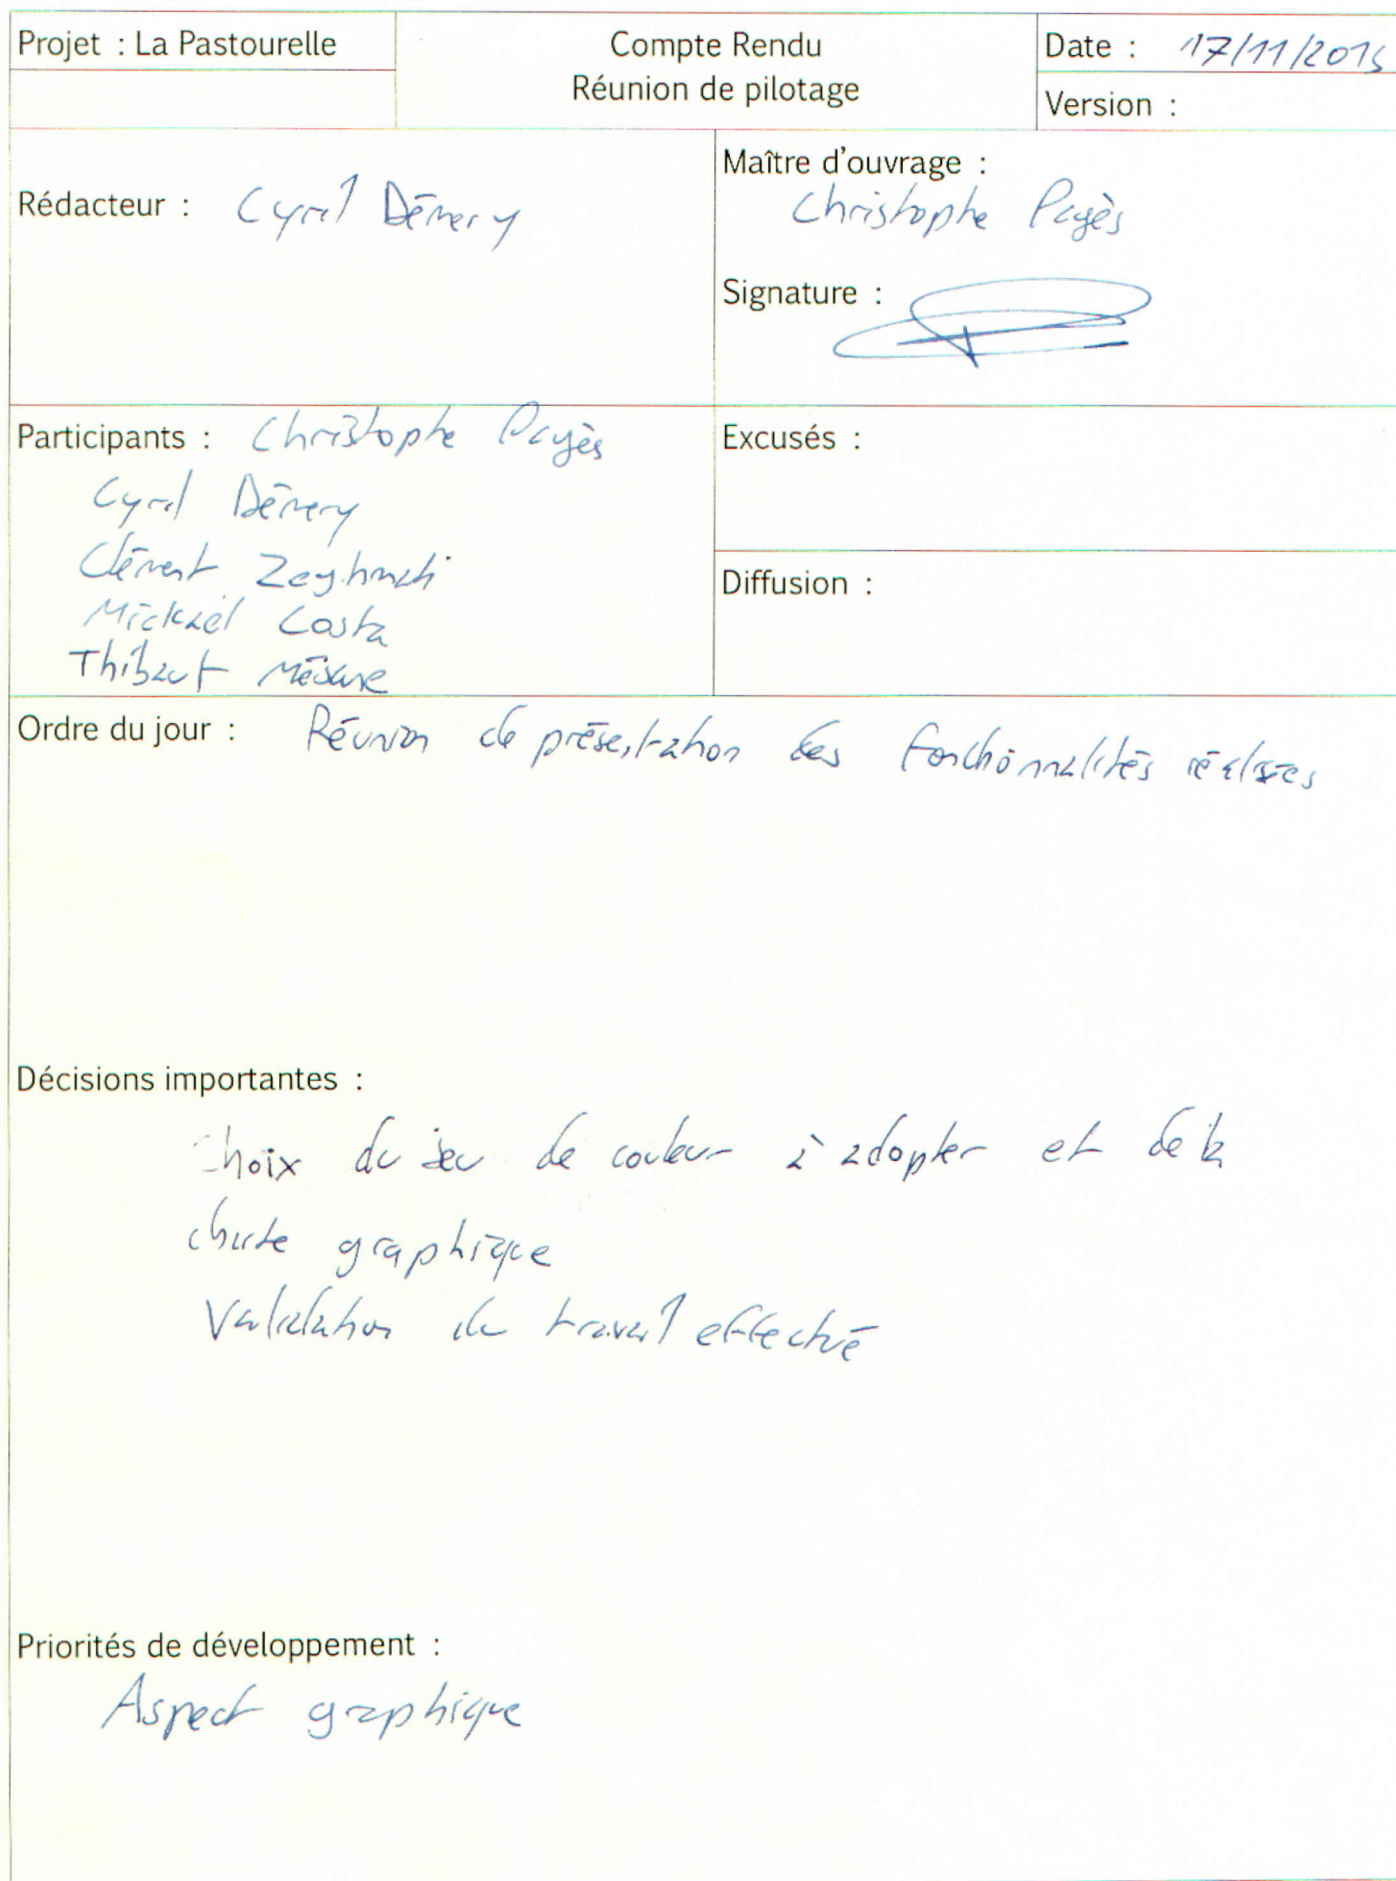 Projet : La Pastourelle
Compte Rendu
Réunion de pilotage
Date : 17/11/2015
Version :
Rédacteur : Cyril Démery
Maître d'ouvrage :
Christophe Pagès
Signature :
Participants : Christophe Pagès
Cyril Démery
Clément
Mickaël Costa
Thibaut
Excusés :
Diffusion :
Ordre du jour : Réunion de présentation des fonctionnalités réalisées
Décisions importantes :
Choix du jeu de couleur à adopter et de la
charte graphique
Validation du travail effectué
Priorités de développement :
Aspect graphique